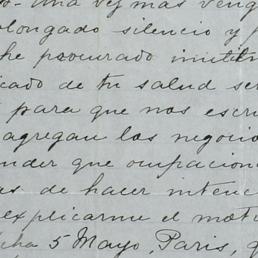 Una vez mas veng
olongado silencio y p
he procurado inutilm
icado de tu salud se
para que nos escri
agregan los negocio
nder que ocupacion
as de hacer intenc
explicarme el moti
cha 5 Mayo, Paris, q